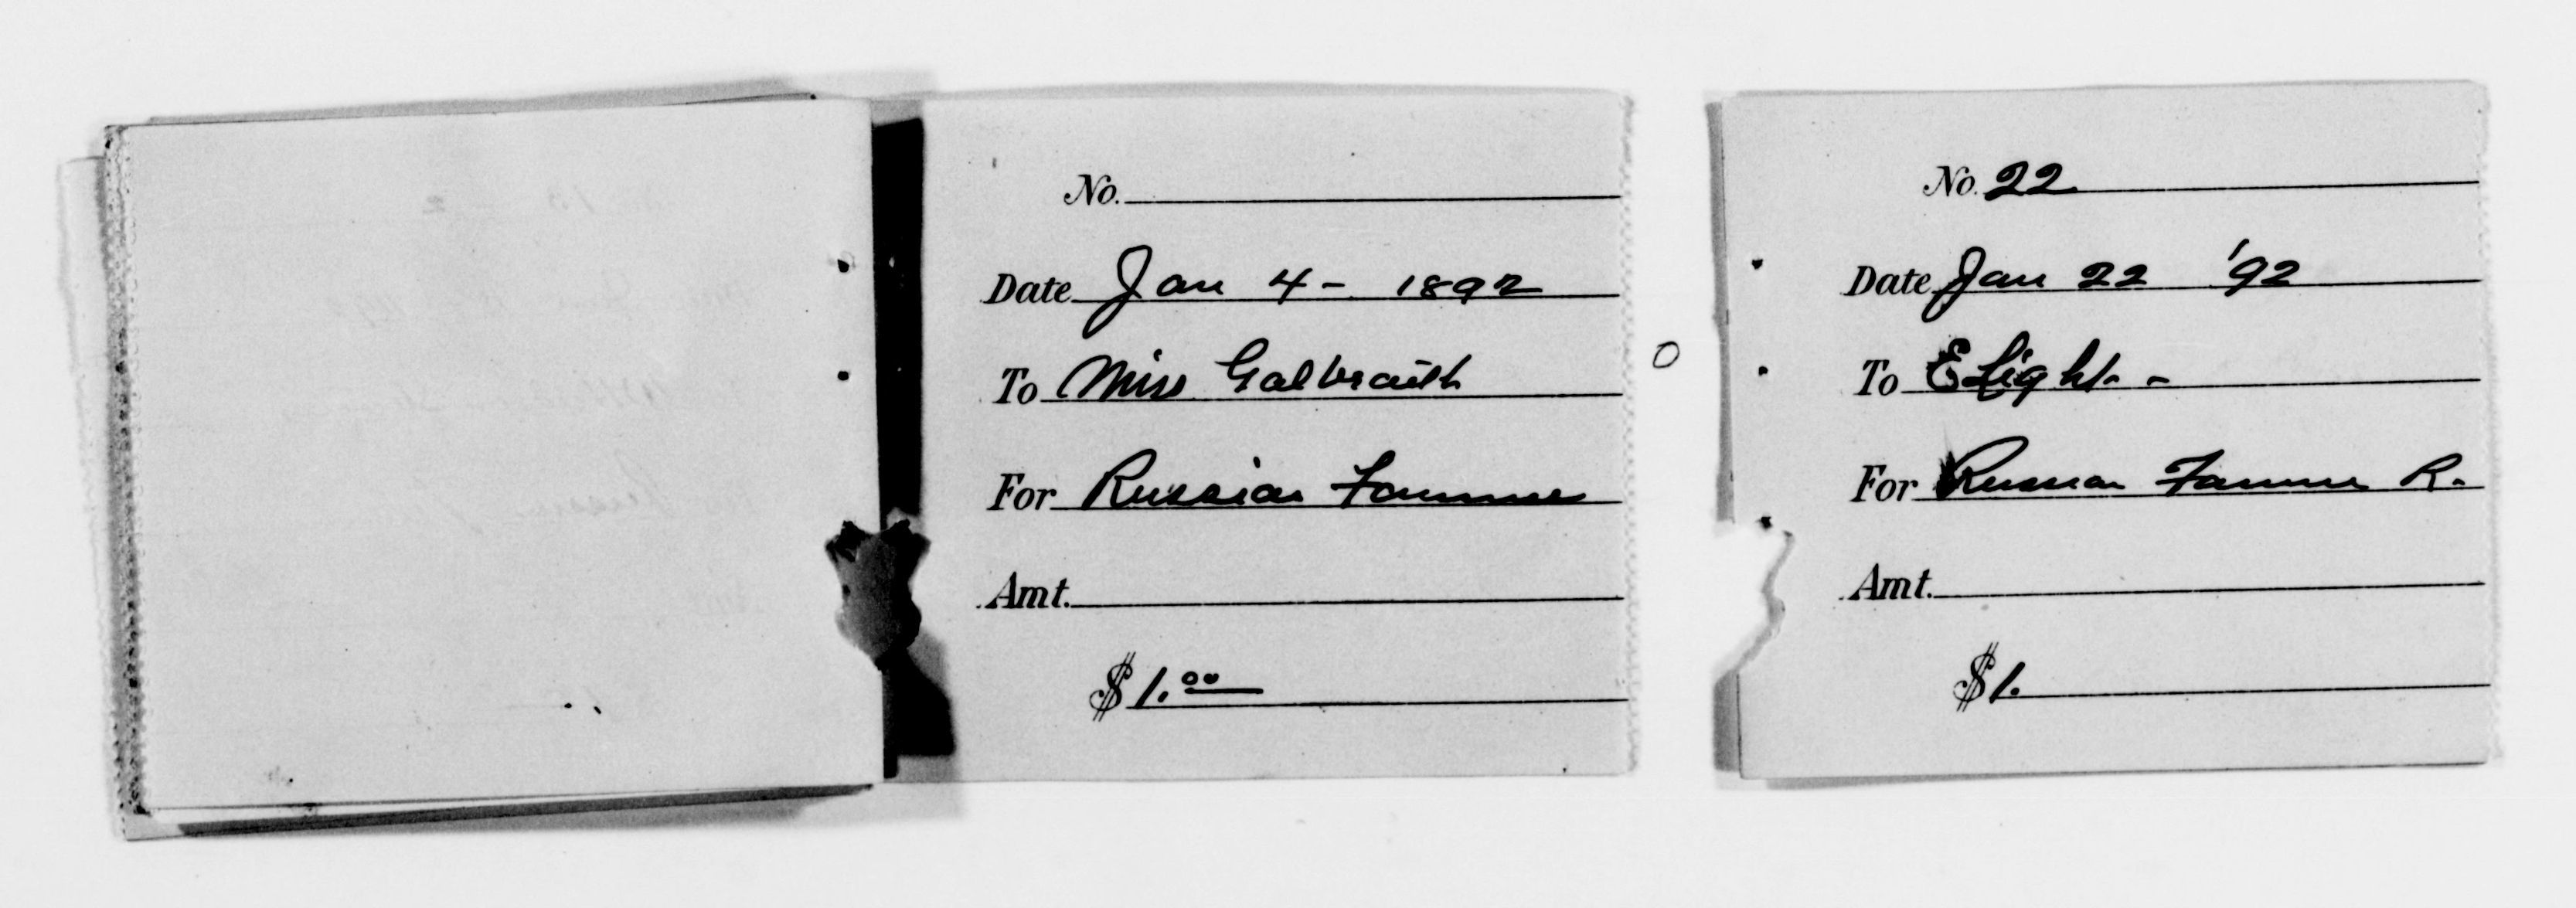 No.
Date Jan 4 - 1892
To Miss Galbraith
For Russian Famine
Amt.
$ 1.00
No. 22
Date Jan 22 '92
To E Light -
For Russian Famine R.
Amt.
$ 1.